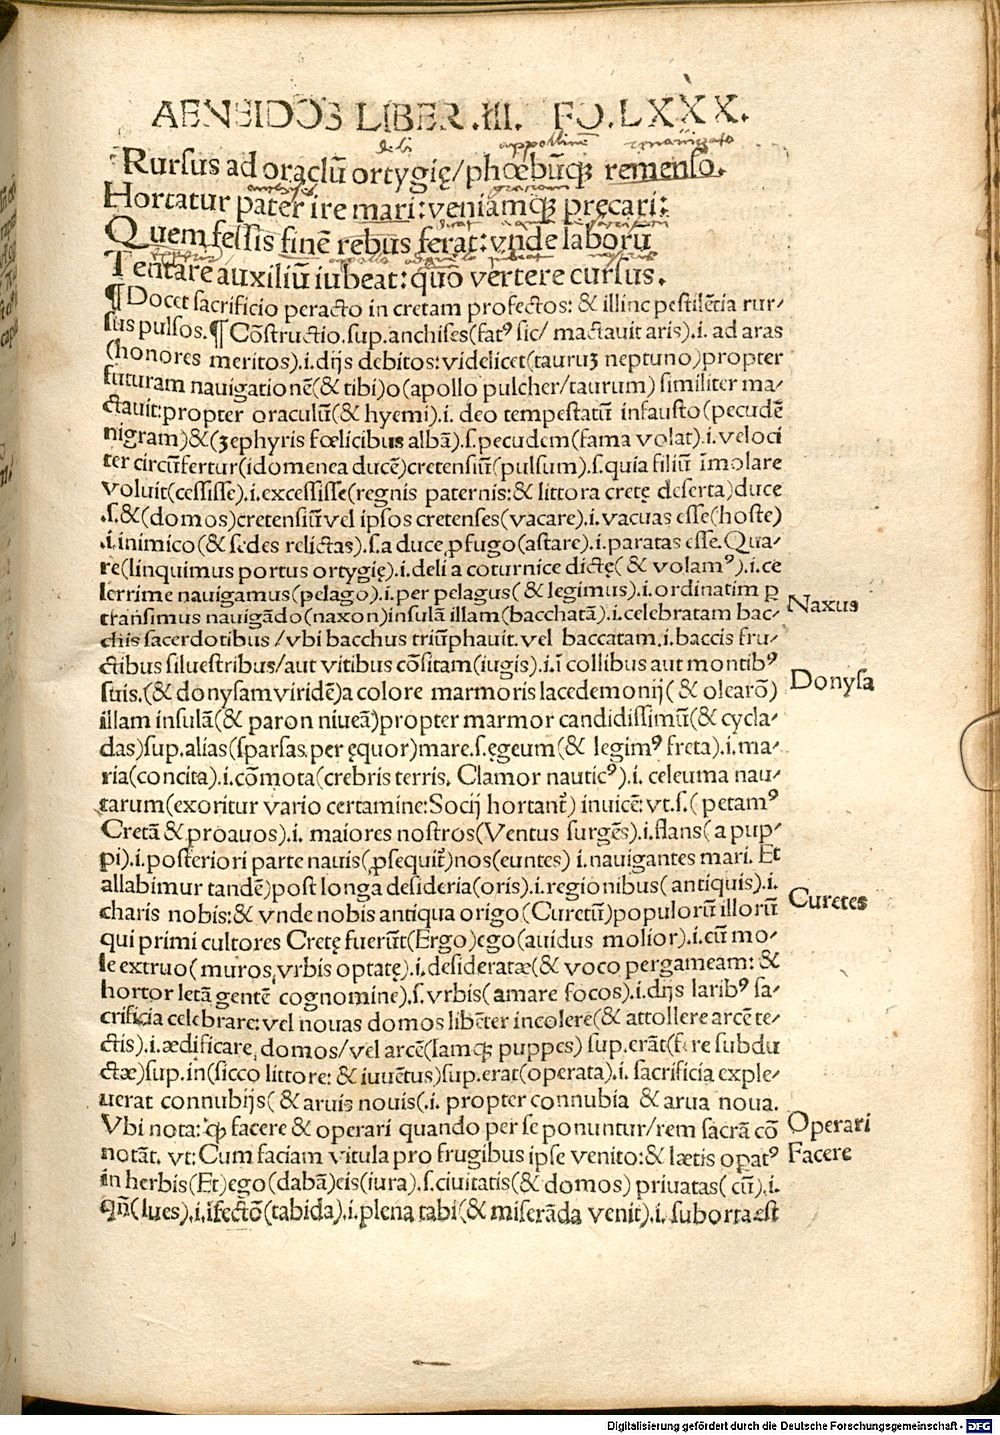 AENEIDOS LIBER .III. FO.LXXX.
deli appollinē renavigato
Rursus ad oraclū ortygię/phœbūqȝ remenso.
anchises graciam
Hortatur pater ire mari: veniamqȝ pręcari:
Quem fessis finē rebus ferat: vnde laborū
Tentare auxiliū iubeat: quo vertere cursus.
¶Docet sacrificio peracto in cretam profectos: & illinc pestilētia rur⸗
sus pulsos.¶Cōstructio.sup.anchises(fatꝰ sic/ mactauit aris).i. ad aras
(honores meritos).i.dijs debitos: videlicet(tauruȝ neptuno)propter
futuram nauigationē(& tibi)o(apollo pulcher/taurum) similiter ma⸗
ctauit:propter oraculū(& hyemi).i. deo tempestatū infausto(pecudē
nigram)&(ȝephyris fœlicibus albā).s.pecudem(fama volat).i.veloci
ter circūfertur(idomenea ducē)cretensiū(pulsum).s.quia filiū īmolare
voluit(cessisse).i.excessisse(regnis paternis:& littora cretę deserta)duce
.s.&(domos)cretensiū vel ipsos cretenses(vacare).i.vacuas esse(hoste)
.i.inimico(& sedes relictas).s.a duce ꝓfugo(astare).i.paratas esse.Qua⸗
re(linquimus portus ortygię).i.deli a coturnice dictę( & volamꝰ).i.ce
lerrime nauigamus(pelago).i.per pelagus( & legimus).i.ordinatim ꝑ
transimus nauigādo(naxon)insulā illam(bacchatā).i.celebratam bac⸗
chis sacerdotibus/vbi bacchus triūphauit.vel baccatam.i.baccis fru⸗
ctibus siluestribus/aut vitibus cōsitam(iugis).i.ī collibus aut montibꝰ
suis.(& donysam viridē)a colore marmoris lacedemonij( & olearō)
illam insulā(& paron niueā)propter marmor candidissimū(& cycla⸗
das)sup.alias(sparsas per ęquor)mare.s.ęgeum(& legimꝰ freta).i.ma⸗
ria(concita).i.cōmota(crebris terris. Clamor nauticꝰ).i. celeuma nau⸗
tarum(exoritur vario certamine:Socij hortant᷑) inuicē: vt.s.( petamꝰ
Cretā & proauos).i. maiores nostros(Ventus surgēs).i.flans( a pup⸗
pi).i.posteriori parte nauis(ꝓsequit᷑)nos(euntes) i.nauigantes mari. Et
allabimur tandē)post longa desideria(oris).i.regionibus( antiquis).i.
charis nobis:& vnde nobis antiqua origo(Curetū)populorū illorū
qui primi cultores Cretę fuerūt(Ergo)ego(auidus molior).i.cū mo⸗
le extruo( muros vrbis optatę).i.desideratæ(& voco pergameam: &
hortor letā gentē cognomine).s.vrbis( amare focos).i.dijs laribꝰ sa⸗
crificia celebrare:vel nouas domos libēter incolere(& attollere arcē te⸗
ctis).i.ædificare domos/vel arcē(Iamqȝ puppes) sup.erāt(fere subdu
ctæ)sup.in(sicco littore: & iuuētus)sup.erat(operata).i. sacrificia exple⸗
uerat connubijs( & aruis nouis(.i. propter connubia & arua noua.
Vbi nota: qȝ facere & operari quando per se ponuntur/rem sacrā cō
notāt. vt: Cum faciam vitula pro frugibus ipse venito:& lætis opatꝰ
in herbis(Et)ego(dabā)eis(iura).s.ciuitatis(& domos) priuatas( cū).i.
qn̄(lues).i.īfectō(tabida).i.plena tabi(& miserāda venit).i. suborta est
Naxus
Donysa
Curetes
Operari
Facere
Digitalisierung gefördert durch die Deutsche Forschungsgemeinschaft - DFG